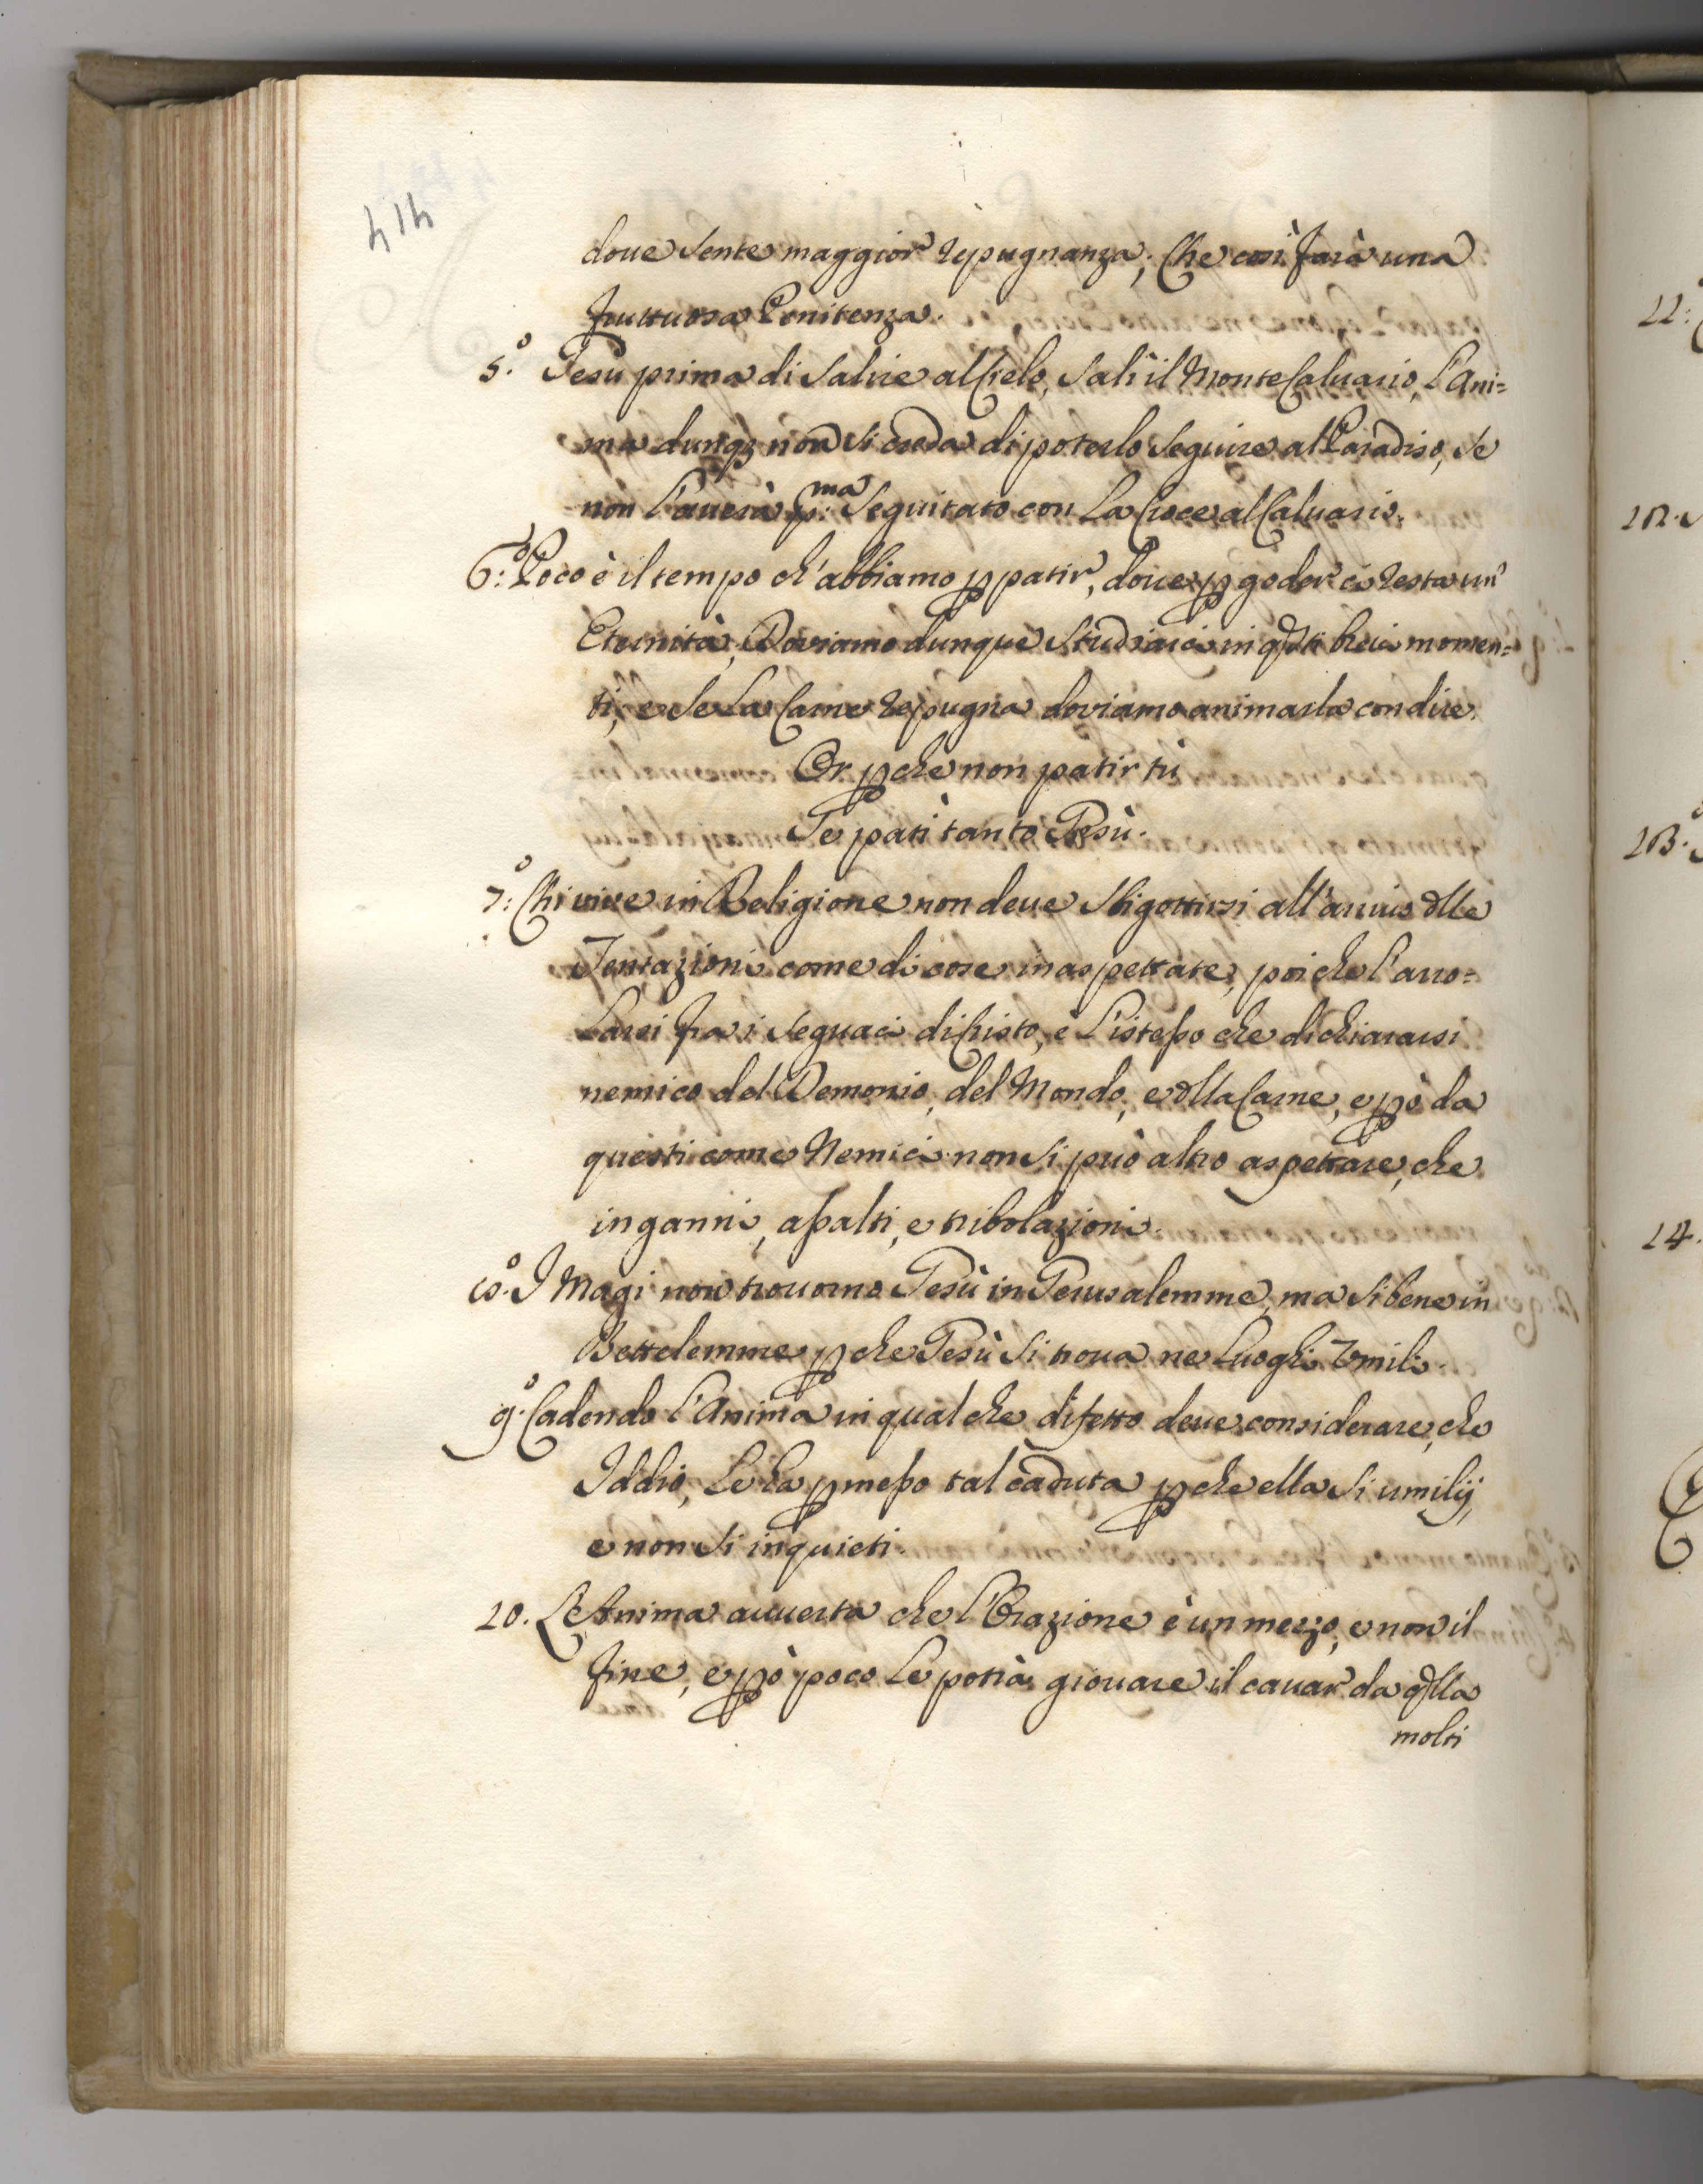 414
doue sente maggior repugnanza; che così farà una
fruttuosa Penitenza.
5.º Jesu prima di salire al Cielo, salì il Monte Caluario, l'Ani=
ma dunq; non si creda di poterlo seguire al Paradiso, se
non l'auerà p:ma seguitato con la Croce al Caluario.
6:º Poco è il tempo ch'abbiamo p patir, doue p goder ci resta un'
Eternità; Doviamo dunque studiarci in qsti breui momen=
ti, e se la Carne repugna doviamo animarla con dire.
Or pche non patir tù
Se patì tanto Jesù.
7:º Chi uiue in Religione non deue sbigottirsi all'arriuo dlle
Tentazioni come di cose inaspettate, poiche l'arro=
larsi fra i seguaci di Cristo, è l'istesso che dichiararsi
nemico del Demonio, del Mondo, e dlla Carne, e pò da
questi come Nemici non si può altro aspettare, che
inganni, assalti, e tribolazioni.
8.º I Magi non trouorno Jesù in Jerusalemme, ma si bene in
Bettelemme pche Jesù si troua ne luoghi Umili.
9.º Cadendo l'Anima in qualche difetto deue considerare, che
Iddio, le ha pmesso tal caduta pche ella si umilij,
e non si inquieti.
10. L'Anima auuerta che l'Orazione è un mezzo, e non il
fine, e pò poco le potrà giouare il cauar da qlla
molti
11:
12.
13.
14.